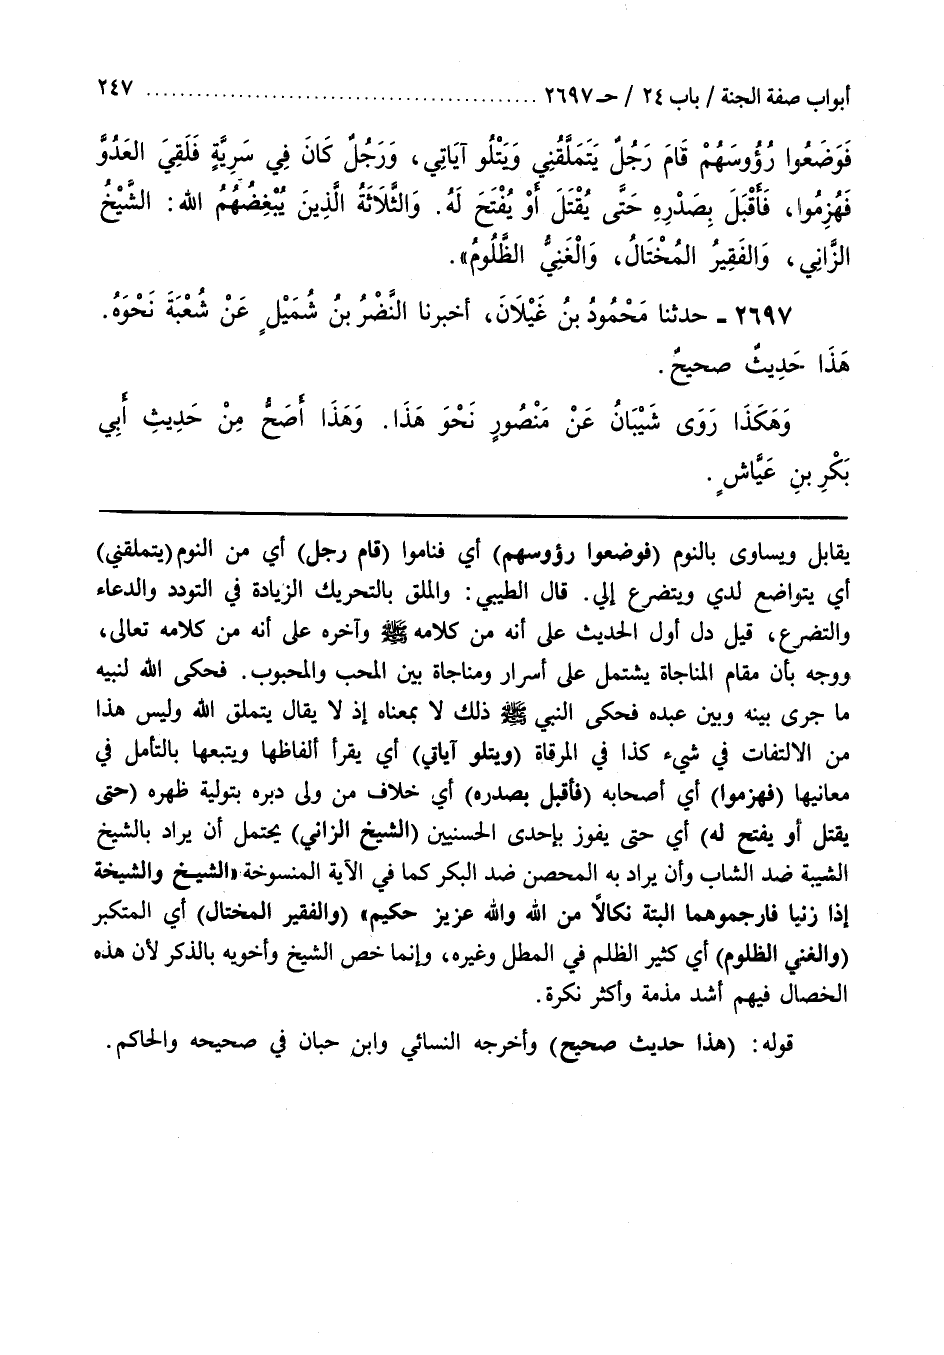 أبواب صفة الجنة / باب ٢٤ / حـ ٢٦٩٧ ........................................ ٢٤٧
فَوَضَعُوا رُؤُوسَهُمْ قَامَ رَجُلٌ يَتَمَلَّقُنِي وَيَتْلُو آيَاتِي، وَرَجُلٌ كَانَ فِي سَرِيَّةٍ فَلَقِيَ العَدُوَّ
فَهُزِمُوا، فَأَقْبَلَ بِصَدْرِهِ حَتَّى يُقْتَلَ أَوْ يُفْتَحَ لَهُ. وَالثَّلَاثَةُ الَّذِينَ يُبْغِضُهُمُ الله: الشَّيْخُ
الزَّانِي، وَالفَقِيرُ المُخْتَالُ، وَالْغَنِيُّ الظَّلُومُ».
٢٦٩٧ ـ حدثنا مَحْمُودُ بنُ غَيْلَانَ، أخبرنا النَّضْرُ بنُ شُمَيْلٍ عَنْ شُعْبَةَ نَحْوَهُ.
هَذَا حَدِيثٌ صحيحٌ.
وَهَكَذَا رَوَى شَيْبَانُ عَنْ مَنْصُورٍ نَحْوَ هَذَا. وَهَذَا أَصَحُّ مِنْ حَدِيثِ أَبِي
بَكْرِ بنِ عَيَّاشٍ.
يقابل ويساوى بالنوم (فوضعوا رؤوسهم) أي فناموا (قام رجل) أي من النوم (يتملقني)
أي يتواضع لدي ويتضرع إلي. قال الطيبي: والملق بالتحريك الزيادة في التودد والدعاء
والتضرع، قيل دل أول الحديث على أنه من كلامه ﷺ وآخره على أنه من كلامه تعالى،
ووجه بأن مقام المناجاة يشتمل على أسرار ومناجاة بين المحب والمحبوب. فحكى الله لنبيه
ما جرى بينه وبين عبده فحكى النبي ﷺ ذلك لا بمعناه إذ لا يقال يتملق الله وليس هذا
من الالتفات في شيء كذا في المرقاة (ويتلو آياتي) أي يقرأ ألفاظها ويتبعها بالتأمل في
معانيها (فهزموا) أي أصحابه (فأقبل بصدره) أي خلاف من ولى دبره بتولية ظهره (حتى
يقتل أو يفتح له) أي حتى يفوز بإحدى الحسنيين (الشيخ الزاني) يحتمل أن يراد بالشيخ
الشيبة ضد الشاب وأن يراد به المحصن ضد البكر كما في الآية المنسوخة «الشيخ والشيخة
إذا زنيا فارجموهما البتة نكالاً من الله والله عزيز حكيم» (والفقير المختال) أي المتكبر
(والغني الظلوم) أي كثير الظلم في المطل وغيره، وإنما خص الشيخ وأخويه بالذكر لأن هذه
الخصال فيهم أشد مذمة وأكثر نكرة.
قوله: (هذا حديث صحيح) وأخرجه النسائي وابن حبان في صحيحه والحاكم.